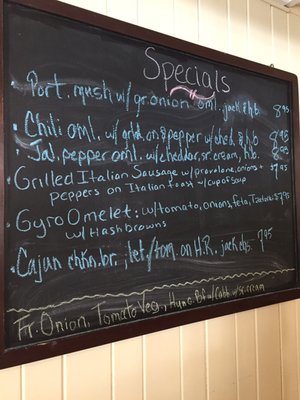 Specials
Port. mush w/ gr. onion oml. jack & h.b. 8.95
Chili oml. w/ grld. on. & pepper w/ ched. & h.b. 8.95
Jal. pepper oml. w/ cheddar, sr. cream, h.b. 8.95
Grilled Italian Sausage w/ provalone, onions +
peppers on Italian toast w/ cup of soup $7.95
Gyro Omelet: w/ tomato, onions, feta, Tzatziki $7.95
w/ Hashbrowns
Cajun chkn. br., let/tom. on H.R., jack chs. 7.95
Fr. Onion, Tomato Veg., Hung. Bf w/ Cabb. w/ sr. cream